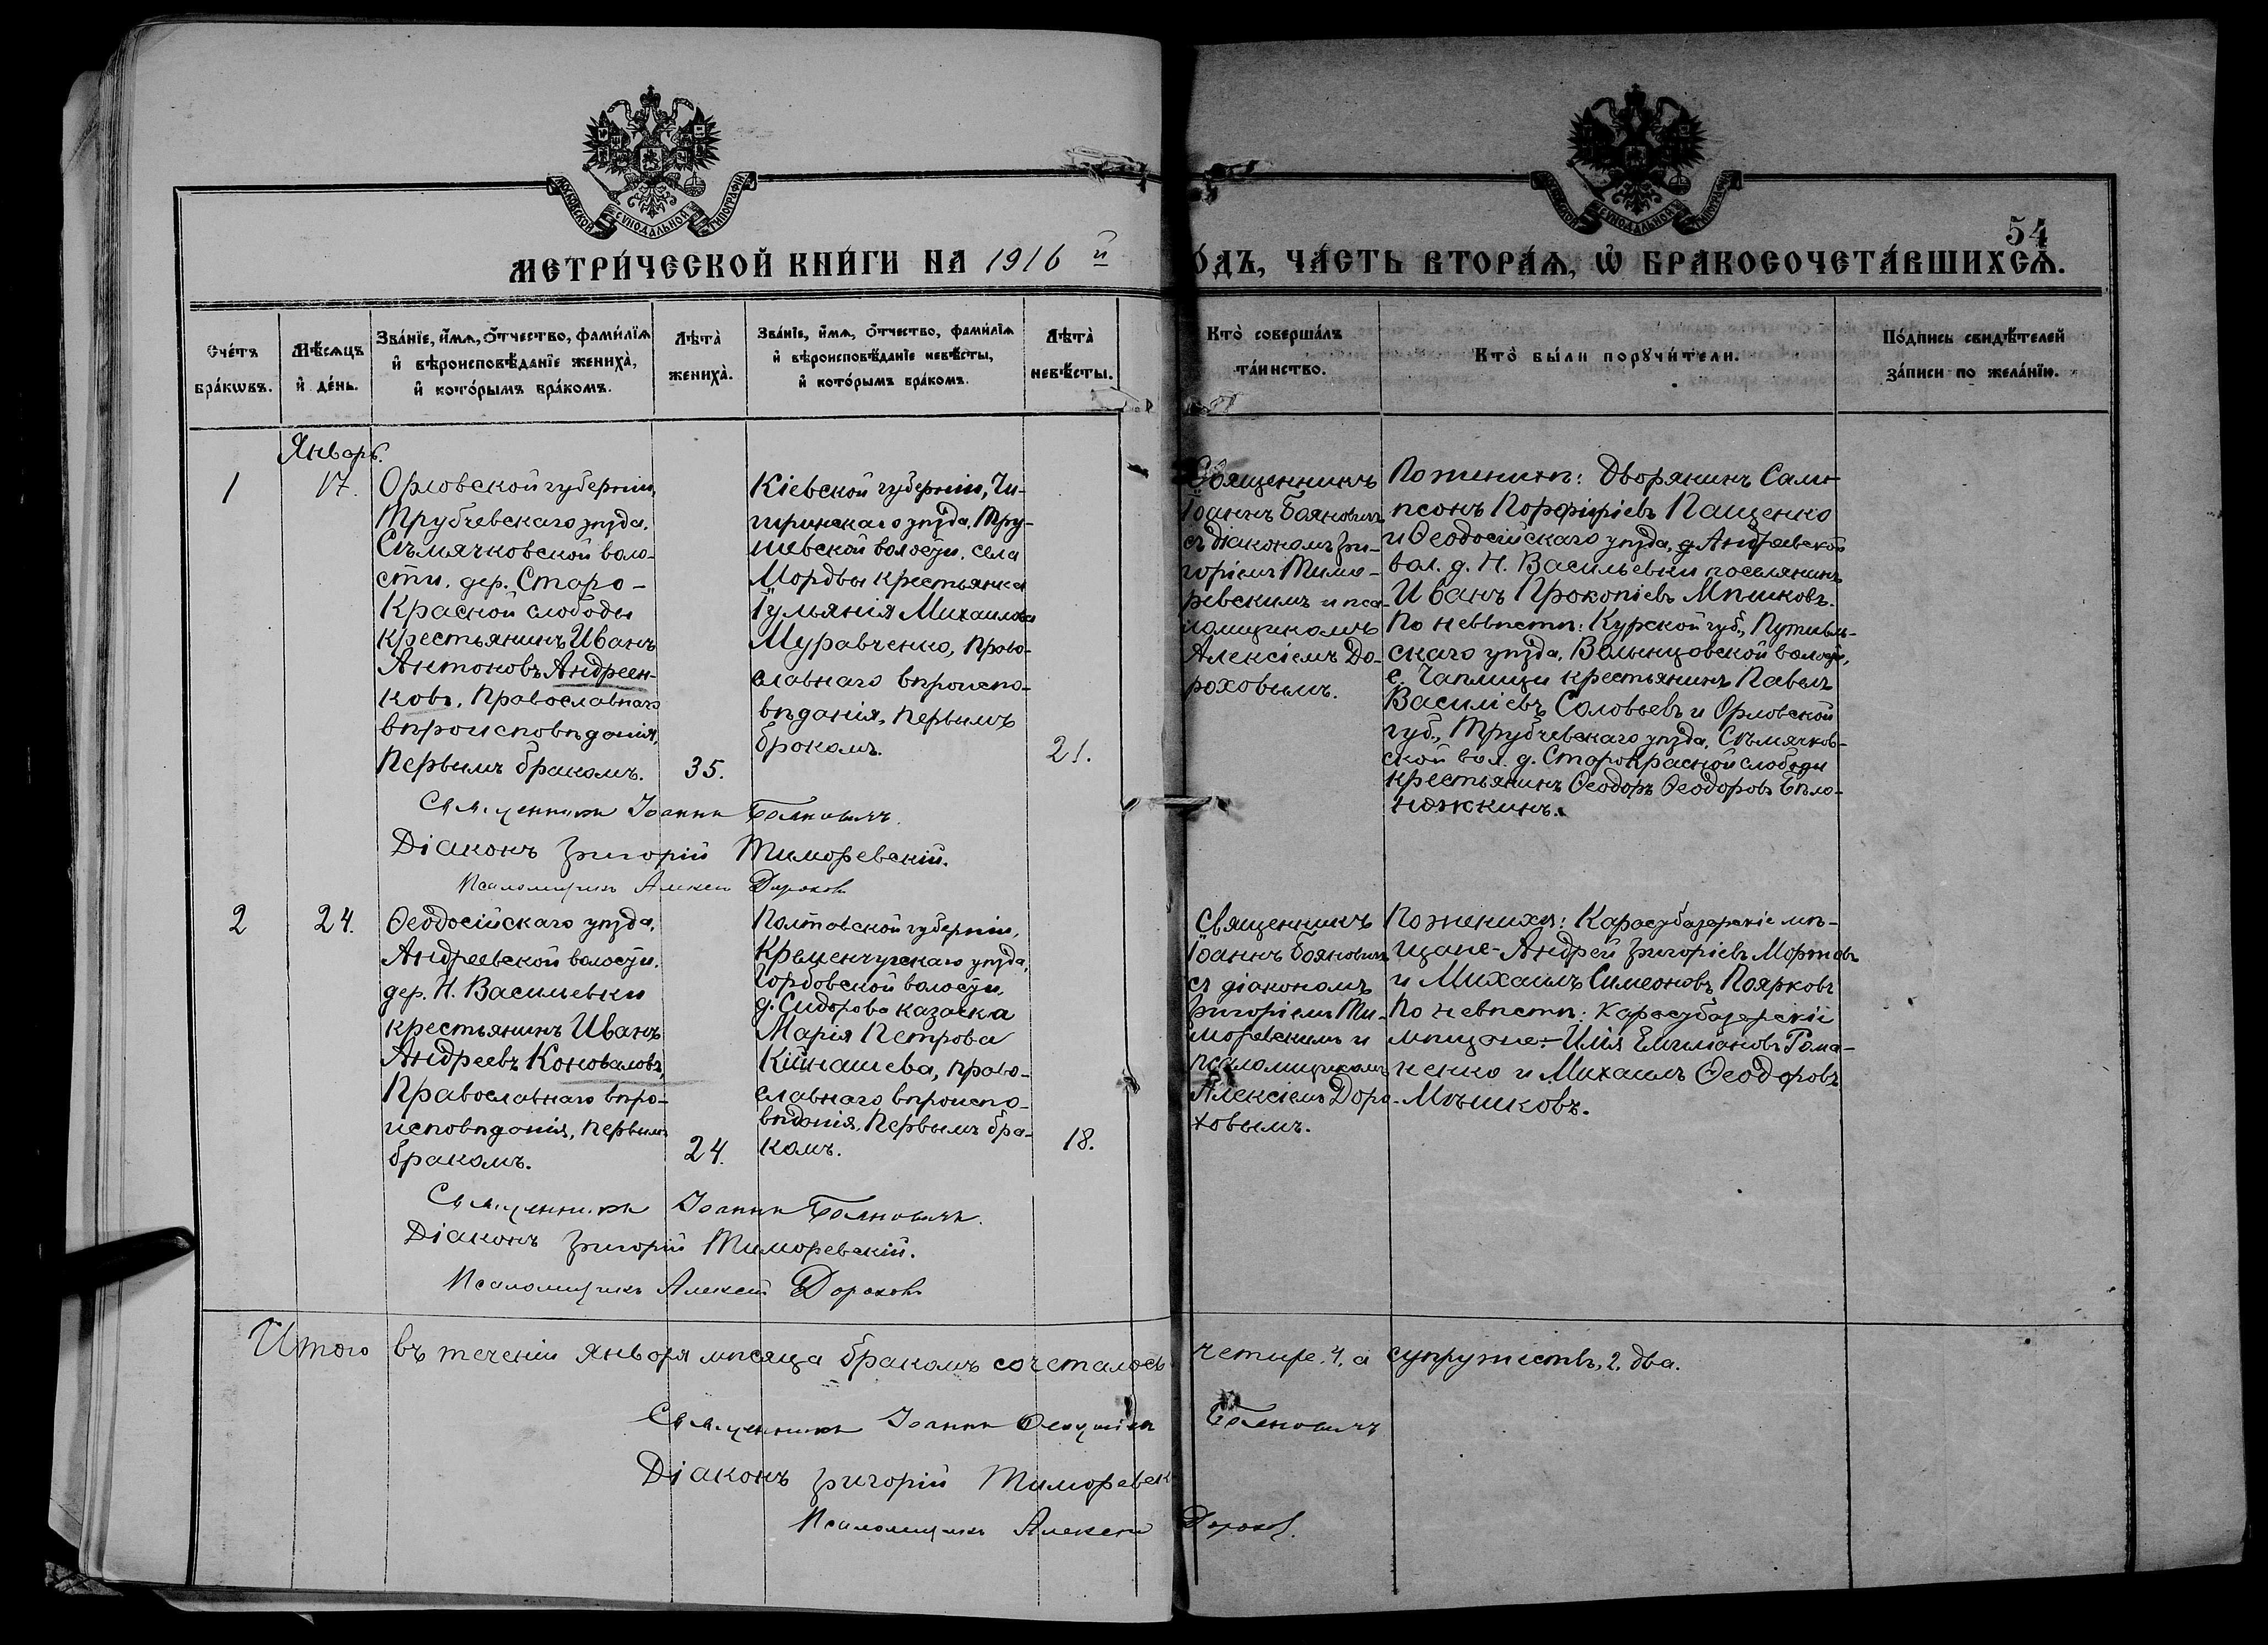 МОСКОВСКОЙ СѴНОДАЛЬНОЙ ТИПОГРАФІИ
МОСКОВСКОЙ СѴНОДАЛЬНОЙ ТИПОГРАФІИ
54
МЕТРИ́ЧЕСКОЙ КНИ́ГИ НА 1916 й
О́ДЪ, ЧА́СТЬ ВТОРА́Ѧ, Ѡ҆ БРАКОСОЧЕТА́ВШИХСѦ.
Сче́тъ
бра́кѡвъ.
Мѣ́сѧцъ
и҆ де́нь.
Зва́нїе, и҆́мѧ, ѻ҆́тчество, фами́лїѧ
и҆ вѣроисповѣ́данїе жениха̀,
и҆ кото́рымъ бра́комъ.
Лѣ́та̀
жениха̀.
Зва́нїе, и҆́мѧ, ѻ҆́тчество, фами́лїѧ
и҆ вѣроисповѣ́данїе невѣ́сты,
и҆ кото́рымъ бра́комъ.
Лѣ́та̀
невѣ́сты.
Кто̀ соверша́лъ
та́инство.
Кто̀ бы́ли порꙋчи́тели.
По́дпись свидѣ́телей
за́писи по жела́нїи.
Январь.
1
17.
Орловской губерніи,
Трубчевскаго уѣзда,
Сѣмячковской воло-
сти, дер. Старо-
Красной слободы
крестьянинъ Иванъ
Антоновъ Андреен-
ковъ, Православнаго
вѣроисповѣданія,
Первымъ бракомъ.
35.
Кіевской губерніи, Чи-
гиринскаго уѣзда, Тру-
шевской волости, села
Мордвы крестьянка
Іуліанія Михаилова
Муравченко, Право-
славнаго вѣроиспо-
вѣданія, Первымъ
бракомъ.
21.
Священникъ
Іоаннъ Бояновичъ
съ діакономъ Гри-
горіемъ Тимо-
ревскимъ и пса-
ломщикомъ
Алексіемъ До-
роховымъ.
По женихѣ: Дворянинъ Сам-
псонъ Порфиріевъ Пащенко
и Ѳеодосійскаго уѣзда, Андреевской
вол. д. Н. Васильевки поселянинъ
Иванъ Прокопіевъ Мѣшковъ.
По невѣстѣ: Курской губ., Путивль-
скаго уѣзда, Волынцовской волости,
с. Чаплищи крестьянинъ Павелъ
Василіевъ Соловьевъ и Орловской
губ., Трубчевскаго уѣзда, Сѣмячков-
ской вол. д. Старокрасной слободы
крестьянинъ Ѳеодоръ Ѳеодоровъ Бѣло-
ножкинъ.
Священникъ Іоаннъ Бояновичъ.
Діаконъ Григорій Тиморевскій.
Псаломщикъ Алексій Дороховъ
2
24.
Ѳеодосійскаго уѣзда,
Андреевской волости,
дер. Н. Василиевки
крестьянинъ Иванъ
Андреевъ Коноваловъ,
Православнаго вѣро-
исповѣданія, Первымъ
бракомъ.
24.
Полтовской губерніи,
Кременчугскаго уѣзда,
д. Сидорова казачка
Марія Петрова
Кійнашева, Право-
славнаго вѣроиспо-
вѣданія, Первымъ бра-
комъ.
18.
Священникъ
Іоаннъ Бояновичъ
съ діакономъ
Григоріемъ Ти-
моревскимъ и
псаломщикомъ
Алексіемъ Доро-
ховымъ.
По женихѣ: Карасубазарскіе мѣ-
щане - Андрей Григоріевъ Мортовъ
и Михаилъ Симеоновъ Поярковъ
По невѣстѣ: Карасубазарскіе
мѣщане:- Илія Емиліановъ Рома-
ненко и Михаилъ Ѳеодоровъ
Мѣшковъ.
Священникъ Іоаннъ Бояновичъ.
Діаконъ Григорій Тиморевскій.
Псаломщикъ Алексій Дороховъ
Итого въ теченіи января мѣсяца бракомъ сочеталось четыре, 4, а супружествъ, 2, два.
Священникъ Іоаннъ Бояновичъ
Діаконъ Григорій Тиморевск
Псаломщикъ Алексій Дороховъ.